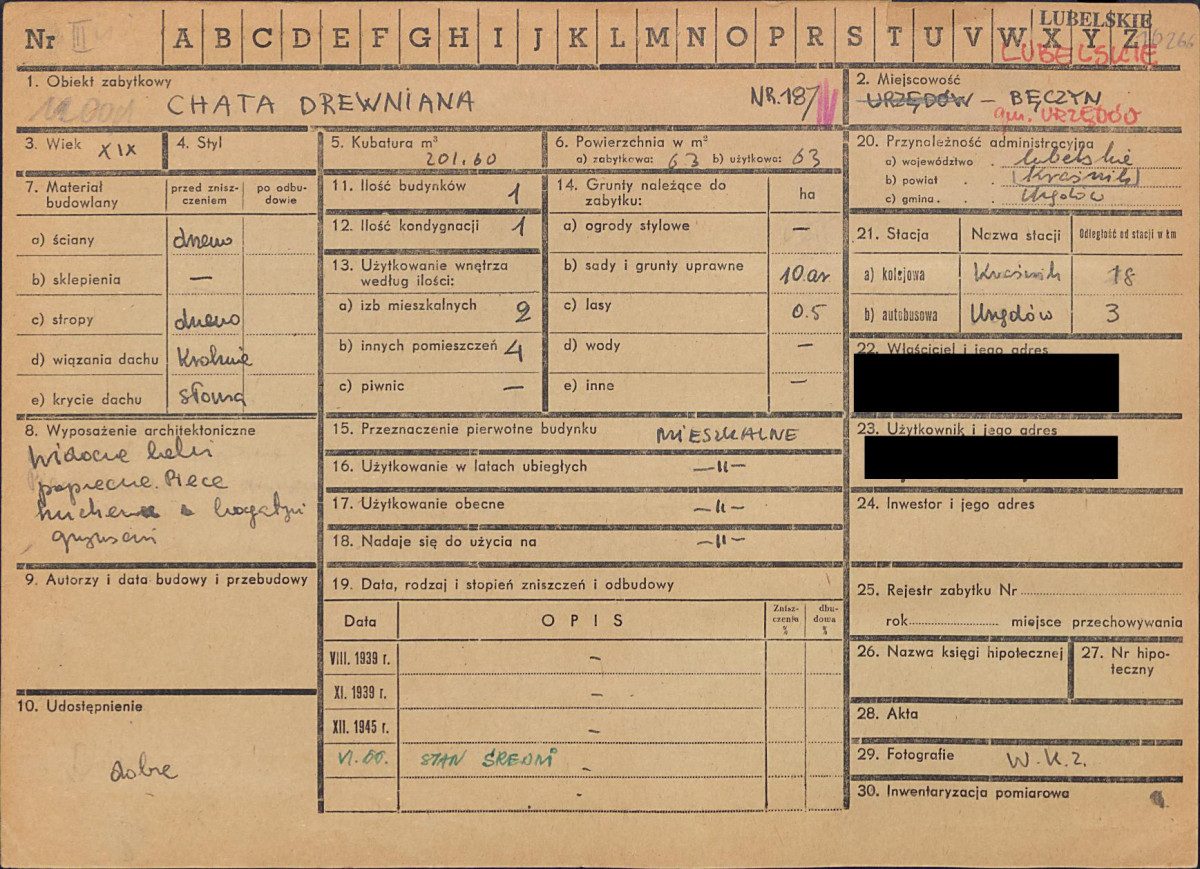 LUBELSKIE
Nr III A B C D E F G H I J K L M N O P R S T U V W X Y Z
LUBELSKIE
1. Obiekt zabytkowy
CHATA DREWNIANA NR. 18/
2. Miejscowość
URZĘDÓW – BĘCZYN
gm. URZĘDÓW
3. Wiek XIX
4. Styl
5. Kubatura m³
201.60
6. Powierzchnia w m²
a) zabytkowa: 63 b) użytkowa: 63
7. Materiał budowlany
przed znisz-
czeniem
po odbu-
dowie
a) ściany drewno
b) sklepienia —
c) stropy drewno
d) wiązania dachu Krokwie
e) krycie dachu słoma
8. Wyposażenie architektoniczne
Widoczne belki
poprzeczne. Piece
kuchenne z bogatymi
gzymsami
9. Autorzy i data budowy i przebudowy
10. Udostępnienie
dobre
11. Ilość budynków 1
12. Ilość kondygnacji 1
13. Użytkowanie wnętrza
według ilości:
a) izb mieszkalnych 2
b) innych pomieszczeń 4
c) piwnic —
14. Grunty należące do
zabytku:
ha
a) ogrody stylowe —
b) sady i grunty uprawne 10.ar
c) lasy 0.5
d) wody —
e) inne —
15. Przeznaczenie pierwotne budynku MIESZKALNE
16. Użytkowanie w latach ubiegłych —"—
17. Użytkowanie obecne —"—
18. Nadaje się do użycia na —"—
19. Data, rodzaj i stopień zniszczeń i odbudowy
Data OPIS
Znisz-
czeniu
%
dbu-
dowa
%
VIII. 1939 r. —
XI. 1939 r. —
XII. 1945 r. —
VI.60. STAN ŚREDNI -
-
20. Przynależność administracyjna
a) województwo lubelskie
b) powiat (Kraśnik)
c) gmina Urzędów
21. Stacja Nazwa stacji Odległość od stacji w km
a) kolejowa Kraśnik 18
b) autobusowa Urzędów 3
22. Właściciel i jego adres
23. Użytkownik i jego adres
24. Inwestor i jego adres
25. Rejestr zabytku Nr
rok miejsce przechowywania
26. Nazwa księgi hipotecznej
27. Nr hipo-
teczny
28. Akta
29. Fotografie W.K.Z.
30. Inwentaryzacja pomiarowa